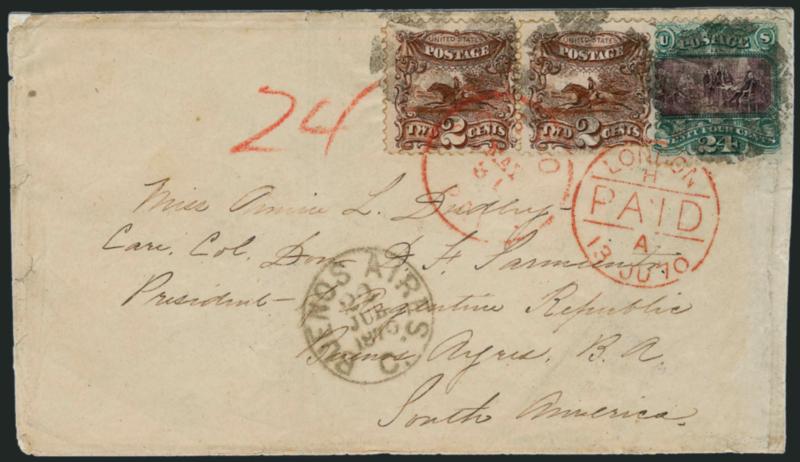 UNITED STATES
POSTAGE
TWO 2 CENTS
UNITED STATES
POSTAGE
TWO 2 CENTS
U S
POSTAGE
TWENTY FOUR CENTS
24
24
LONDON
H
PAID
A
13 JU 70
Miss Annie L. Dudley
Care. Col. Don D. F. Sarmiento
President Argentine Republic
Buenos Ayres, B. A.
South America.
BUENOS AIRES. C.
JUL
1870